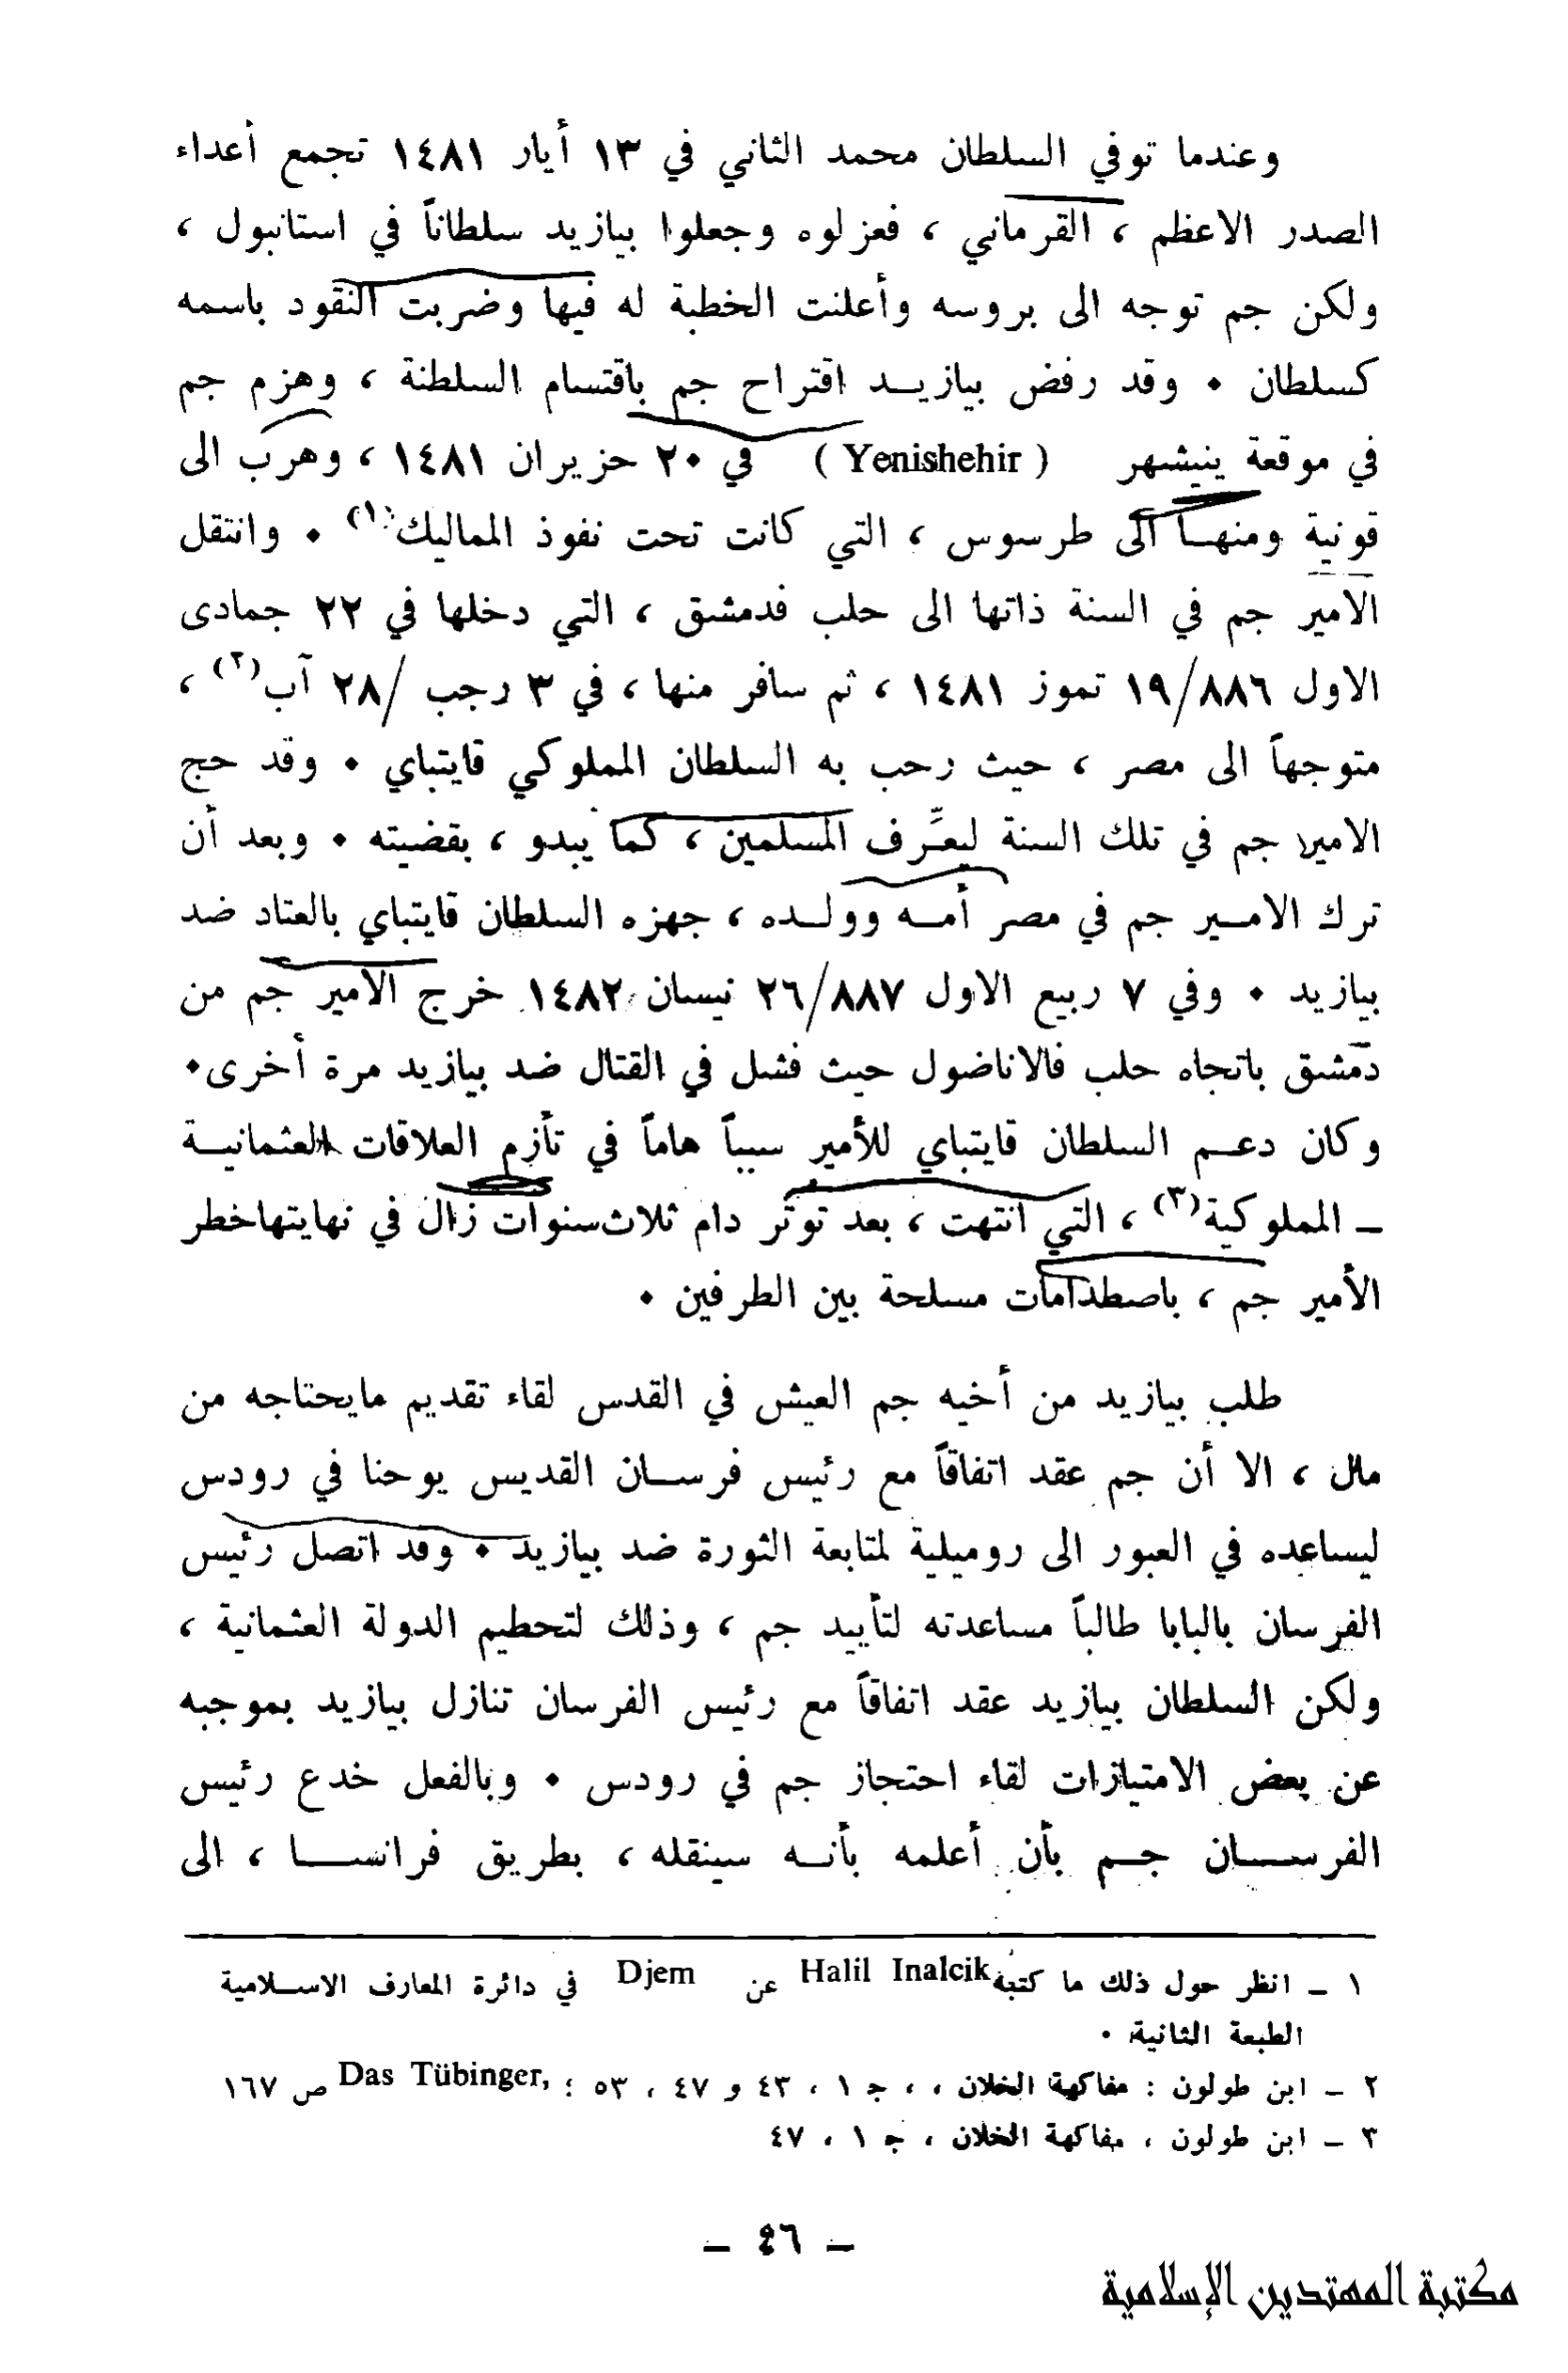 وعندما توفي السلطان محمد الثاني في ١٣ أيار ١٤٨١ تجمع أعداء
الصدر الاعظم ، القرماني ، فعزلوه وجعلوا بيازيد سلطاناً في استانبول ،
ولكن جم توجه الى بروسه وأعلنت الخطبة له فيها وضربت النقود باسمه
كسلطان ٠ وقد رفض بيازيـد اقتراح جم باقتسام السلطنة ، وهزم جم
في موقعة ينيشهر ( Yenishehir ) في ٢٠ حزيران ١٤٨١ ، وهرب الى
قونية ومنهـا الى طرسوس ، التي كانت تحت نفوذ المماليك(١) ٠ وانتقل
الامير جم في السنة ذاتها الى حلب فدمشق ، التي دخلها في ٢٢ جمادى
الاول ١٩/٨٨٦ تموز ١٤٨١ ، ثم سافر منها ، في ٣ رجب /٢٨ آب(٢) ،
متوجهاً الى مصر ، حيث رحب به السلطان المملوكي قايتباي ٠ وقد حج
الامير جم في تلك السنة ليعرِّف المسلمين ، كما يبدو ، بقضيته ٠ وبعد أن
ترك الامـير جم في مصر أمـه وولـده ، جهزه السلطان قايتباي بالعتاد ضد
بيازيد ٠ وفي ٧ ربيع الاول ٢٦/٨٨٧ نيسان ١٤٨٢ خرج الامير جم من
دمشق باتجاه حلب فالاناضول حيث فشل في القتال ضد بيازيد مرة أخرى٠
وكان دعـم السلطان قايتباي للأمير سبباً هاماً في تأزم العلاقات العثمانيـة
ـ المملوكية(٣) ، التي انتهت ، بعد توتر دام ثلاث سنوات زال في نهايتها خطر
الأمير جم ، باصطدامات مسلحة بين الطرفين ٠
طلب بيازيد من أخيه جم العيش في القدس لقاء تقديم مايحتاجه من
مال ، الا أن جم عقد اتفاقاً مع رئيس فرسـان القديس يوحنا في رودس
ليساعده في العبور الى روميلية لمتابعة الثورة ضد بيازيد ٠ وقد اتصل رئيس
الفرسان بالبابا طالباً مساعدته لتأييد جم ، وذلك لتحطيم الدولة العثمانية ،
ولكن السلطان بيازيد عقد اتفاقاً مع رئيس الفرسان تنازل بيازيد بموجبه
عن بعض الامتيازات لقاء احتجاز جم في رودس ٠ وبالفعل خدع رئيس
الفرسـان جـم بأن أعلمه بأنـه سينقله ، بطريق فرانسـا ، الى
١ ـ انظر حول ذلك ما كتبه Halil Inalcik عن Djem في دائرة المعارف الاسـلامية
الطبعة الثانية ٠
٢ ـ ابن طولون : مفاكهة الخلان ، ، جـ ١ ، ٤٣ و ٤٧ ، ٥٣ ؛ Das Tübinger, ص ١٦٧
٣ ـ ابن طولون ، مفاكهة الخلان ، جـ ١ ، ٤٧
ـ ٤٦ ـ
مكتبة المهتدين الإسلامية